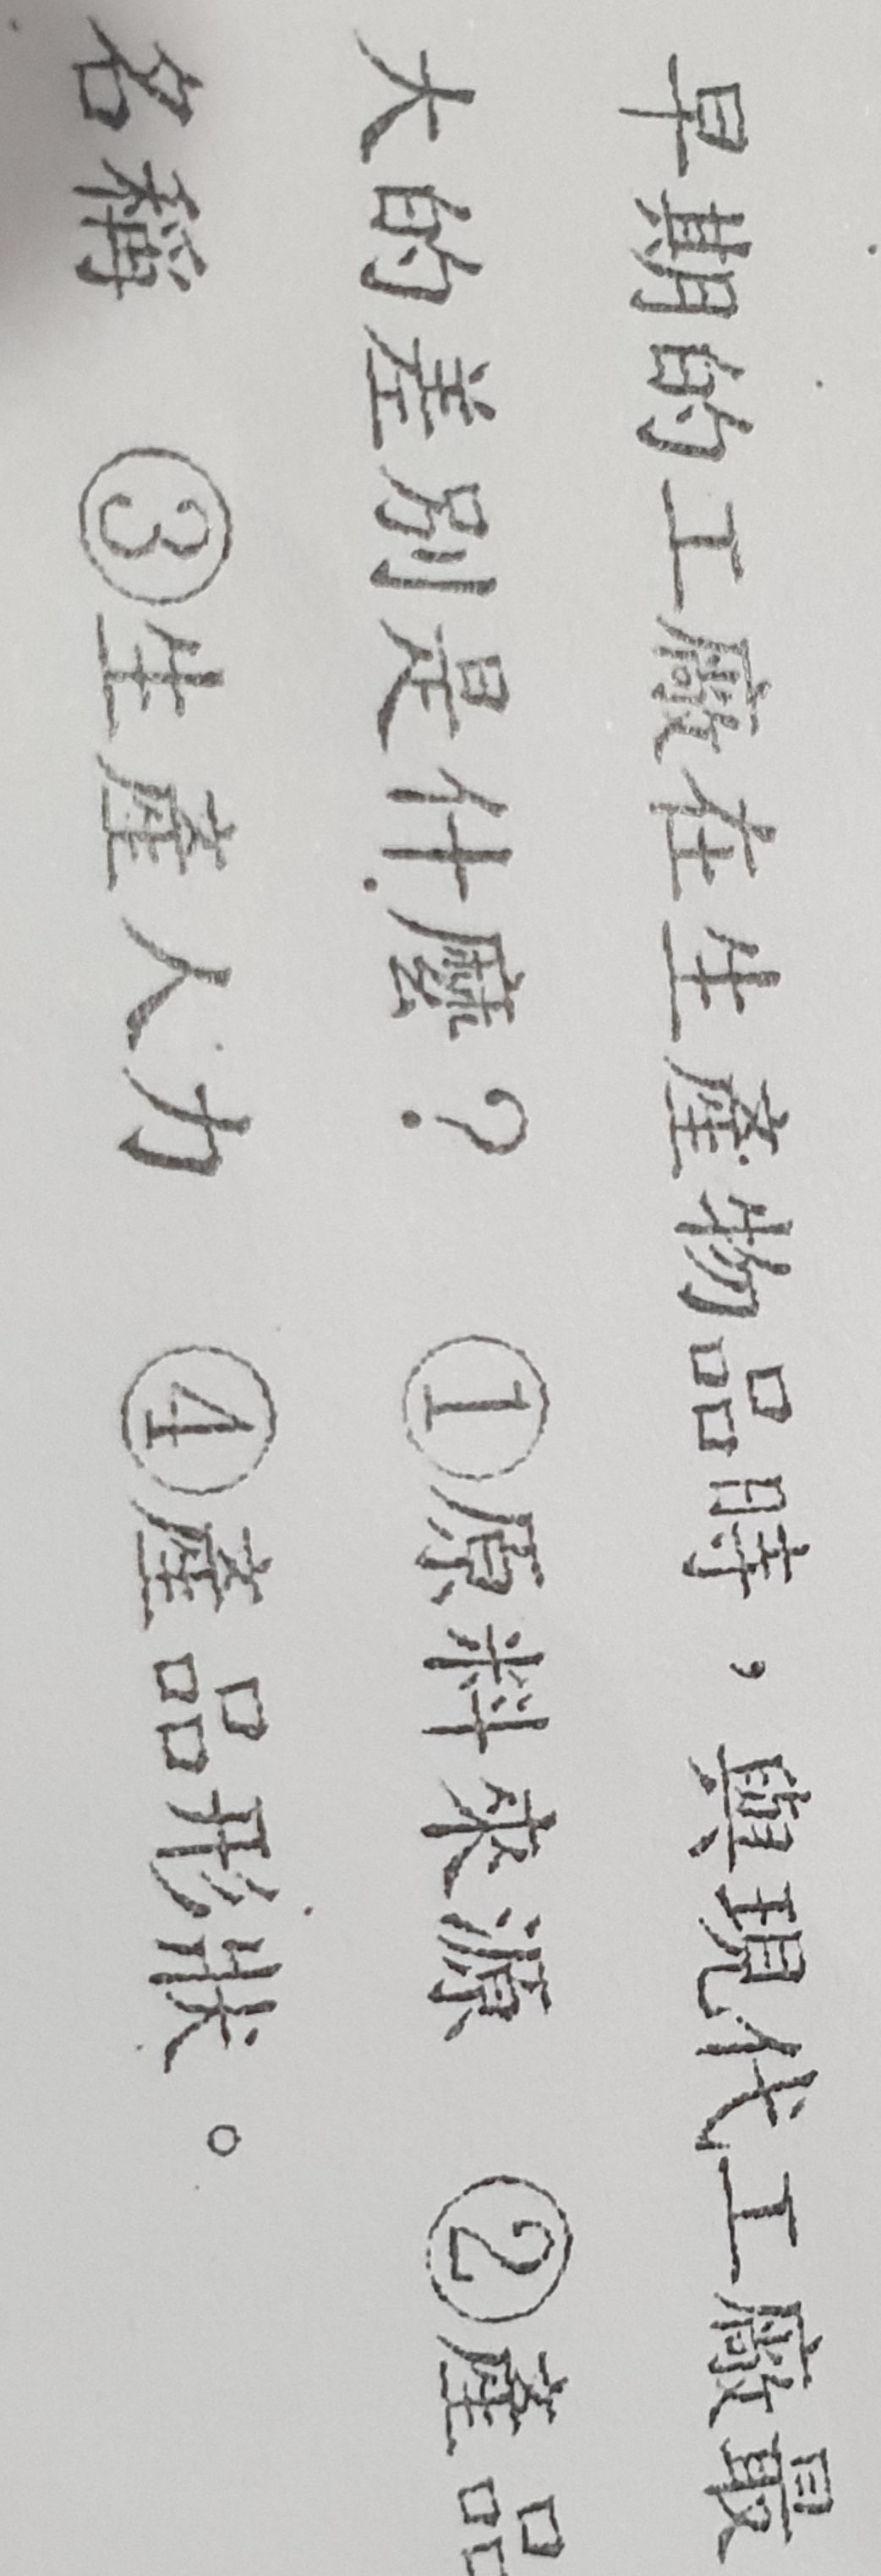 早期的工廠在生產物品時，與現代工廠最
大的差別是什麼？　①原料來源　②產品
名稱　③生產人力　④產品形狀。